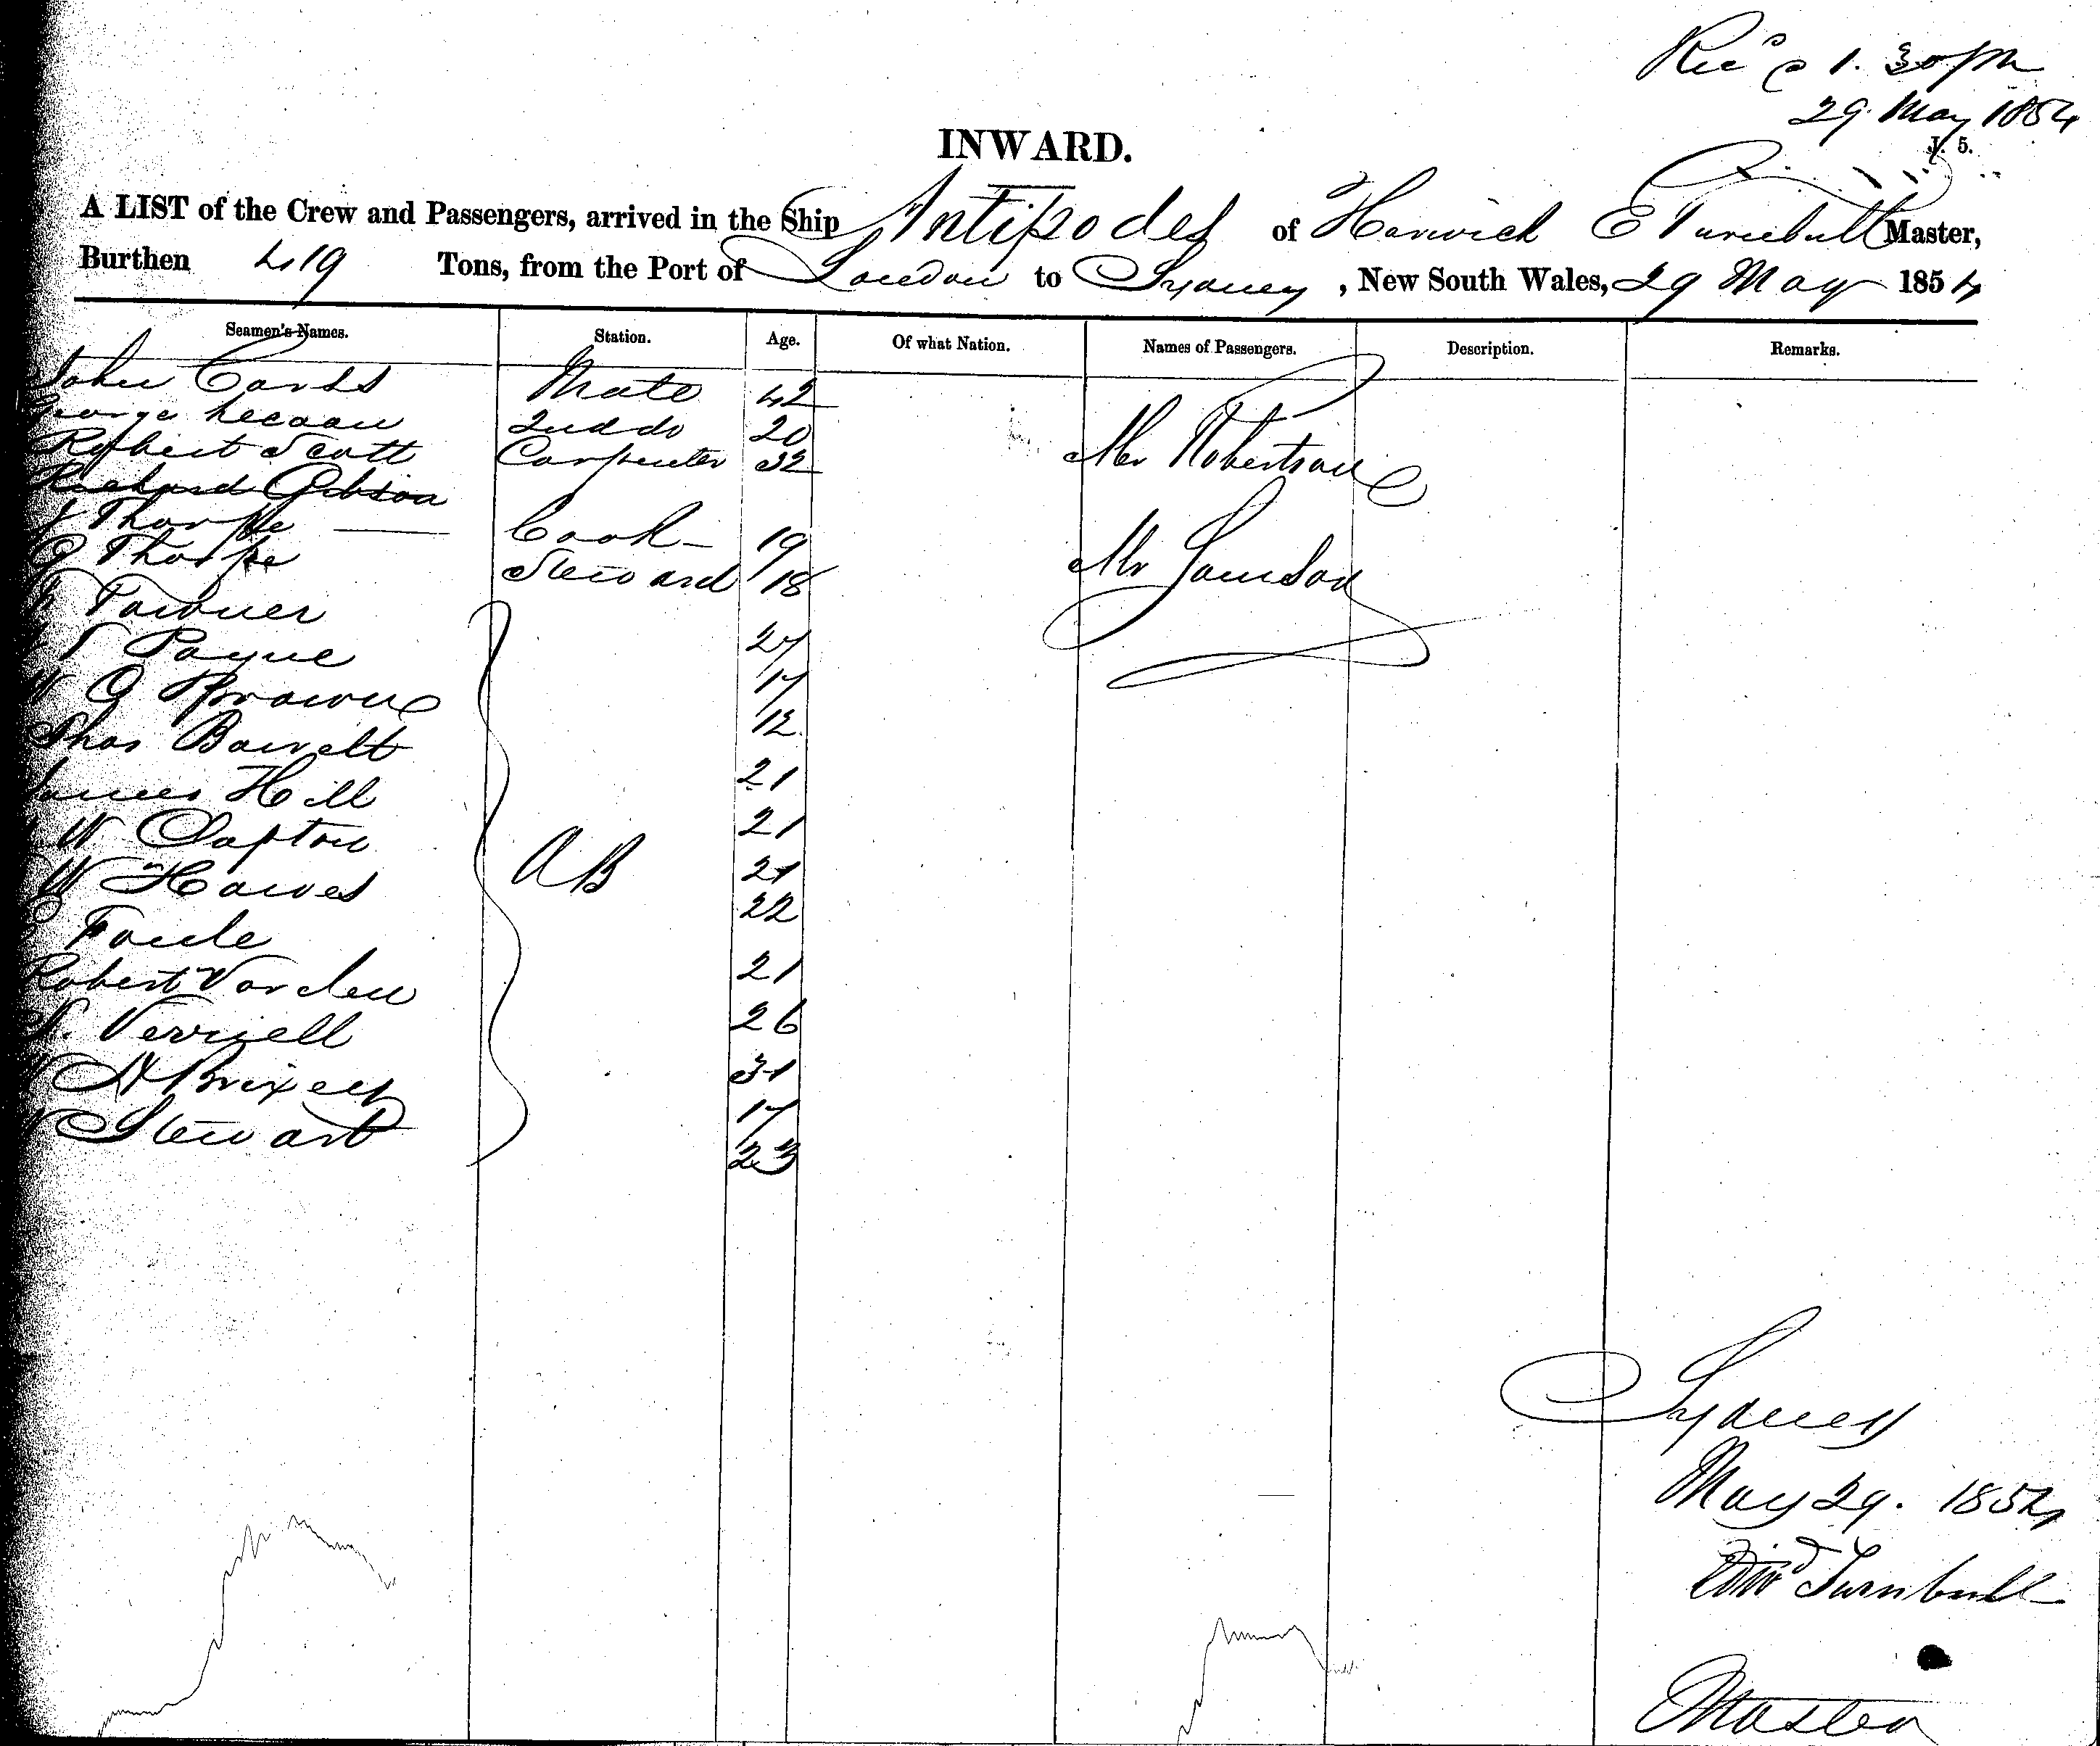 Rec'd @ 1.30 pm
29 May 1854
INWARD.
5.
A LIST of the Crew and Passengers, arrived in the Ship Antipodes of Harwich E Turnbull Master,
Burthen 419 Tons, from the Port of London to Sydney, New South Wales, 29 May 1854
Seamen's Names. Station. Age. Of what Nation. Names of Passengers. Description. Remarks.
John Mate 42
George 2nd do 20
Robert Scott Carpenter 32 Mr Robertson
Richard Gibson
Thorpe Cook 19
G Thorpe Steward 18 Mr
Towner 27
Payne 17
W G Browne 12
Thos Barrett 21
James Hill 21
W Clapton AB 21
W Hawes 22
21
Robert Varden 26
Verriell 31
17
Stewart 23
Sydney
May 29. 1854
Edwd Turnbull
Master